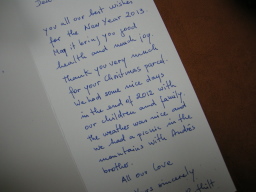 you all our best wishes
for the New Year 2013
May it bring you good
health and much joy.
Thank you very much
for your Christmas parcel.
We had some nice days
in the end of 2012 with
our children and family.
The weather was nice and
we had a picnic in the
mountains with Andrés
brother.
All our Love
sincerely